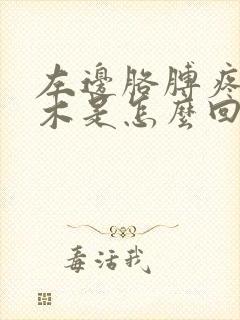 左邊胳膊疼
木是怎麼回
毒活我